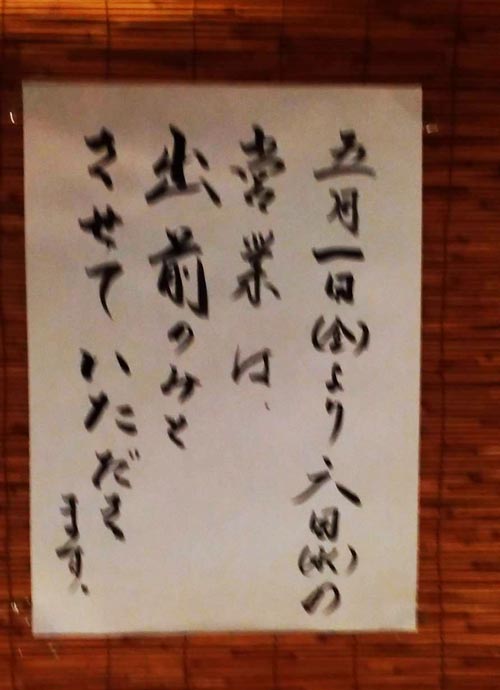 五月一日(金)より六日(水)の
営業は、
出前のみと
させていただき
ます。